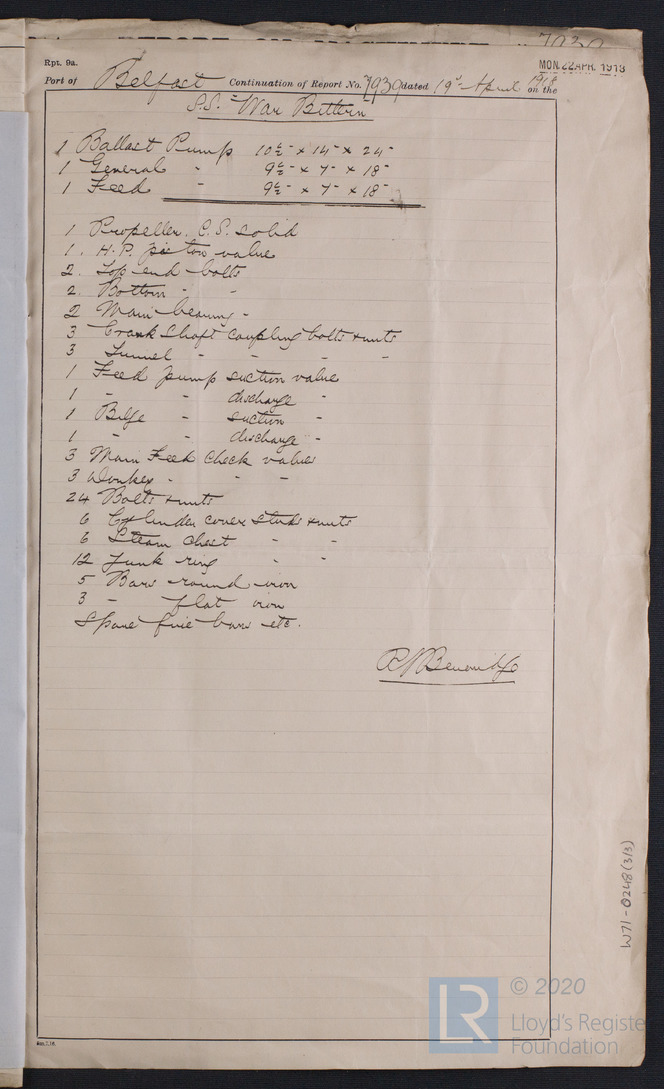 7939
Rpt. 9a.
MON. 22 APR. 1918
Port of Belfast Continuation of Report No. 7939 dated 19th April 1918 on the
S.S. "War Bittern"
1 Ballast Pump 10½" x 14" x 24"
1 General " 9½" x 7" x 18"
1 Feed " 9½" x 7" x 18"
1 Propeller. C.S. solid
1. H.P. piston valve
2. Top end bolts
2. Bottom " "
2 Main bearing "
3 Crank Shaft coupling bolts & nuts
3 Tunnel " " " "
1 Feed pump suction valve
1 " " discharge "
1 Bilge " suction "
1 " " discharge "
3 Main Feed Check valves
3 Donkey " " "
24 Bolts & nuts
6 Cylinder cover studs & nuts
6 Steam Chest " "
12 Junk ring " "
5 Bars round iron
3 " flat iron
Spare fire bars etc.
R J Beveridge
W71-0248 (3/3)
© 2020
Lloyd's Register
Foundation